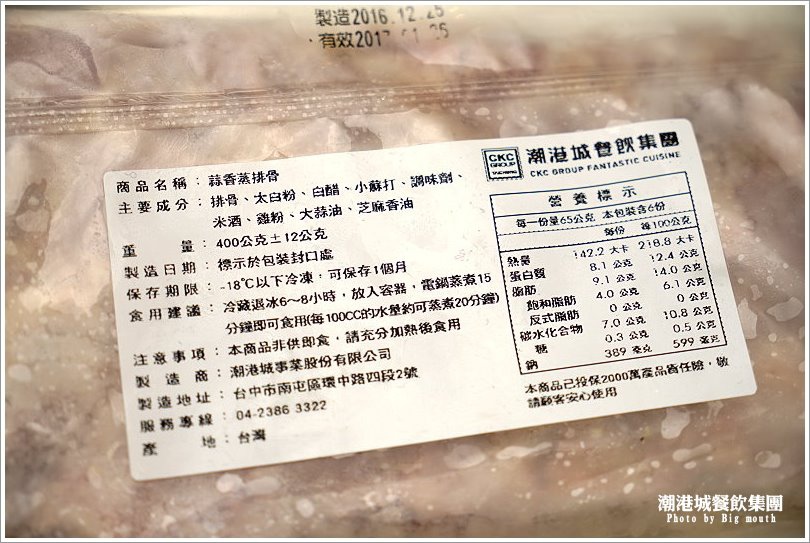 製造2016.12.25
有效2017.01.25
CKC
GROUP
潮港城餐飲集團
CKC GROUP FANTASTIC CUISINE
商品名稱：蒜香蒸排骨
主要成分：排骨、太白粉、白醋、小蘇打、調味劑、
米酒、雞粉、大蒜油、芝麻香油
重量：400公克±12公克
製造日期：標示於包裝封口處
保存期限：-18℃以下冷凍，可保存1個月
食用建議：冷藏退冰6～8小時，放入容器，電鍋蒸煮15
分鐘即可食用(每100CC的水量約可蒸煮20分鐘)
注意事項：本商品非供即食，請充分加熱後食用
製造商：潮港城事業股份有限公司
製造地址：台中市南屯區環中路四段2號
服務專線：04-2386 3322
產地：台灣
營養標示
每一份量65公克 本包裝含6份
每份 每100公克
熱量 142.2 大卡 218.8 大卡
蛋白質 8.1 公克 12.4 公克
脂肪 9.1 公克 14.0 公克
飽和脂肪 4.0 公克 6.1 公克
反式脂肪 0 公克 0 公克
碳水化合物 7.0 公克 10.8 公克
糖 0.3 公克 0.5 公克
鈉 389 毫克 599 毫克
本商品已投保2000萬產品責任險，敬
請顧客安心使用
潮港城餐飲集團
Photo by Big mouth